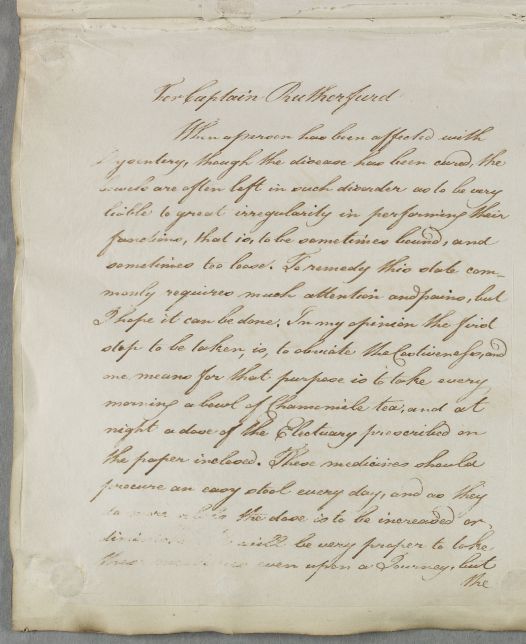 For Captain Rutherfurd
When a person has been affected with
Dysentery, though the disease has been cured, the
bowels are often left in such disorder as to be very
liable to great irregularity in performing their
functions, that is, to be sometimes bound, and
sometimes too loose. To remedy this state com-
monly requires much attention and pains, but
I hope it can be done. In my opinion the first
step to be taken, is, to obviate the Costiveness, and
one means for that purpose is to take every
morning a bowl of Chamomile tea, and at
night a dose of the Electuary prescribed on
the paper inclosed. These medicines should
procure an easy stool every day, and as they
do the dose is to be increased or
will be very proper to take
these even upon a Journey, but
the